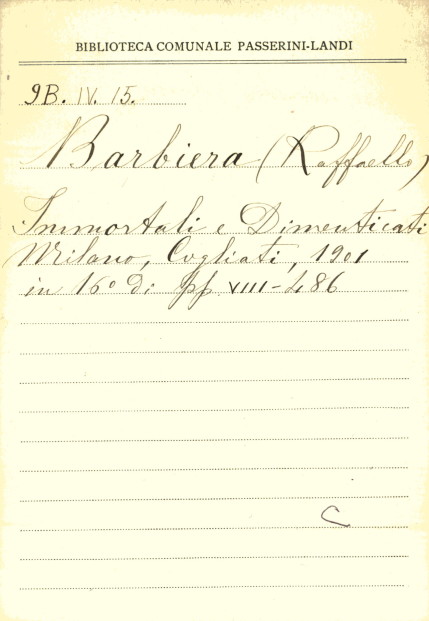 BIBLIOTECA COMUNALE PASSERINI-LANDI
9B. IV. 15.
Barbiera (Raffaello)
Immortali e Dimenticati
Milano, Cogliati, 1901
in 16° di pp VIII-486
C